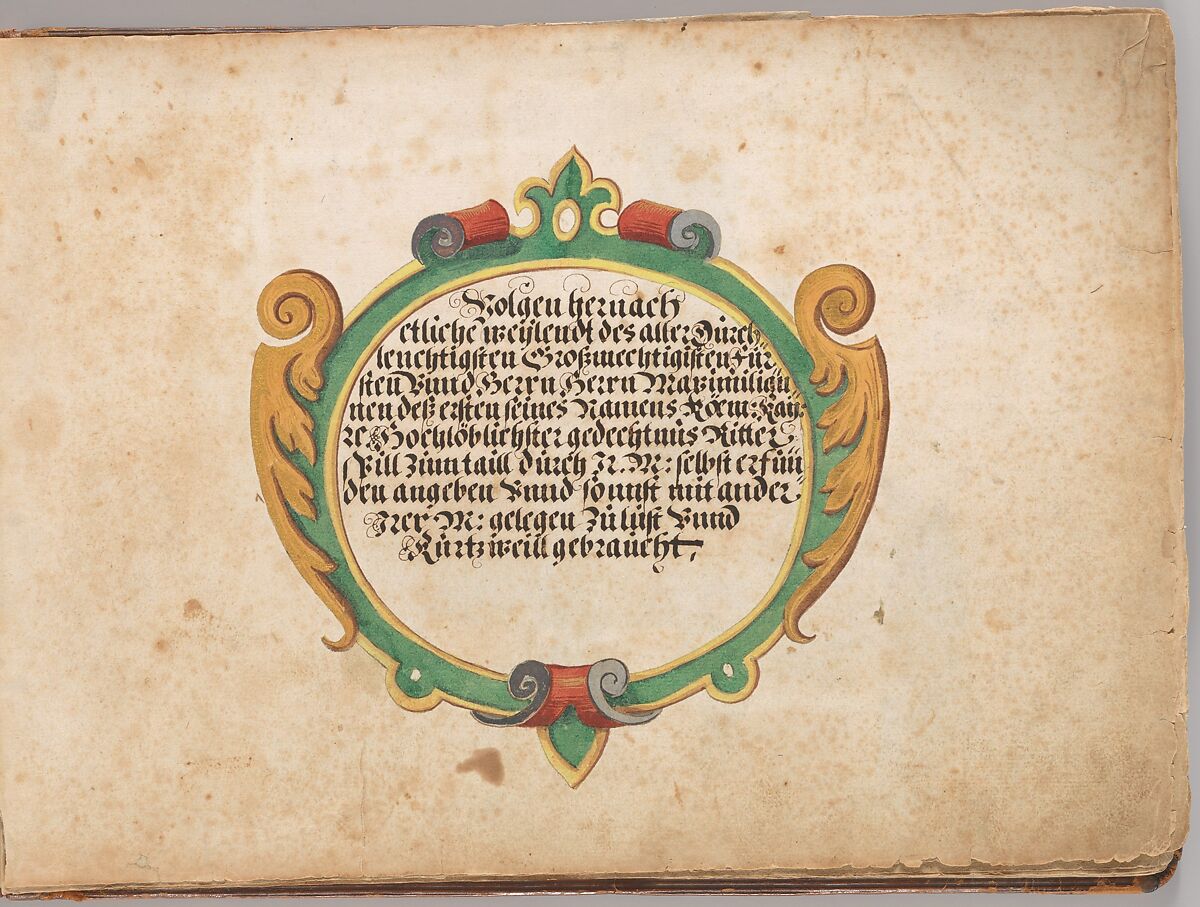 Volgen hernach
etliche weylendt des aller Durch
leuchtigsten Großmechtigisten Für
sten Vnnd Herrn Herrn Maximilian
nen deß ersten seines Namens Röem: Kay:
rc Hochlöblichster gedechtnus Ritter
Spill Zum taill durch Jr. M: selbst erfun
den angeben Vnnd sonnst mit ander
Jrer M: gelegen Zu lust Vnnd
Kurtzweill gebraucht.